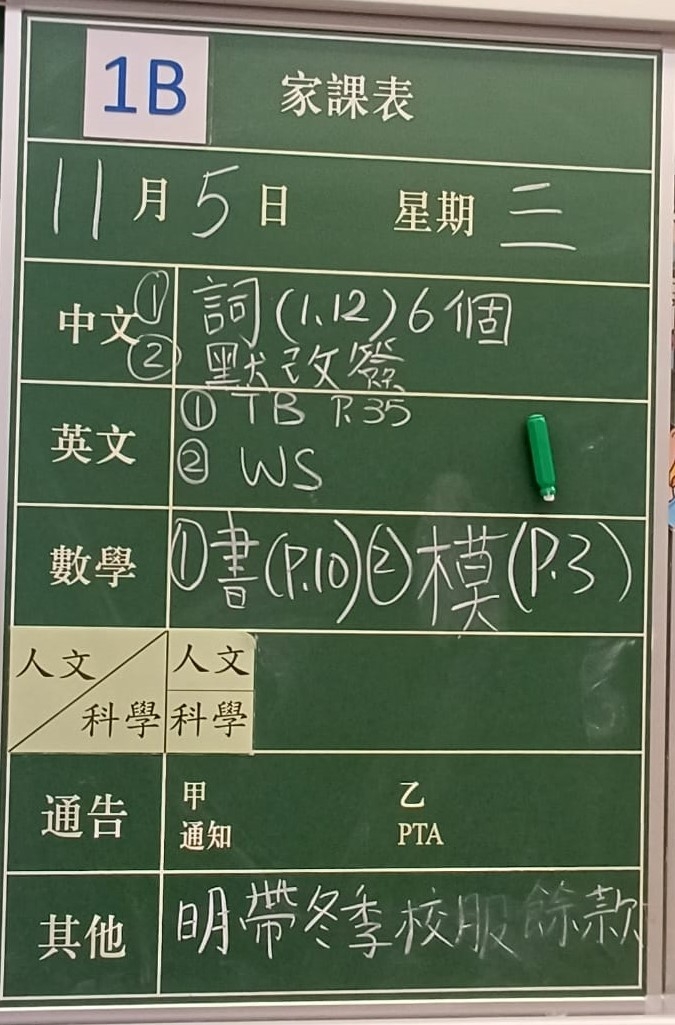 1B 家課表
11月5日 星期三
中文 ① 詞(1、12)6個
② 默改簽
英文 ① TB P.35
② WS
數學 ①書(P.10)②模(P.3)
人文 人文
科學 科學
通告 甲 乙
通知 PTA
其他 明帶冬季校服餘款